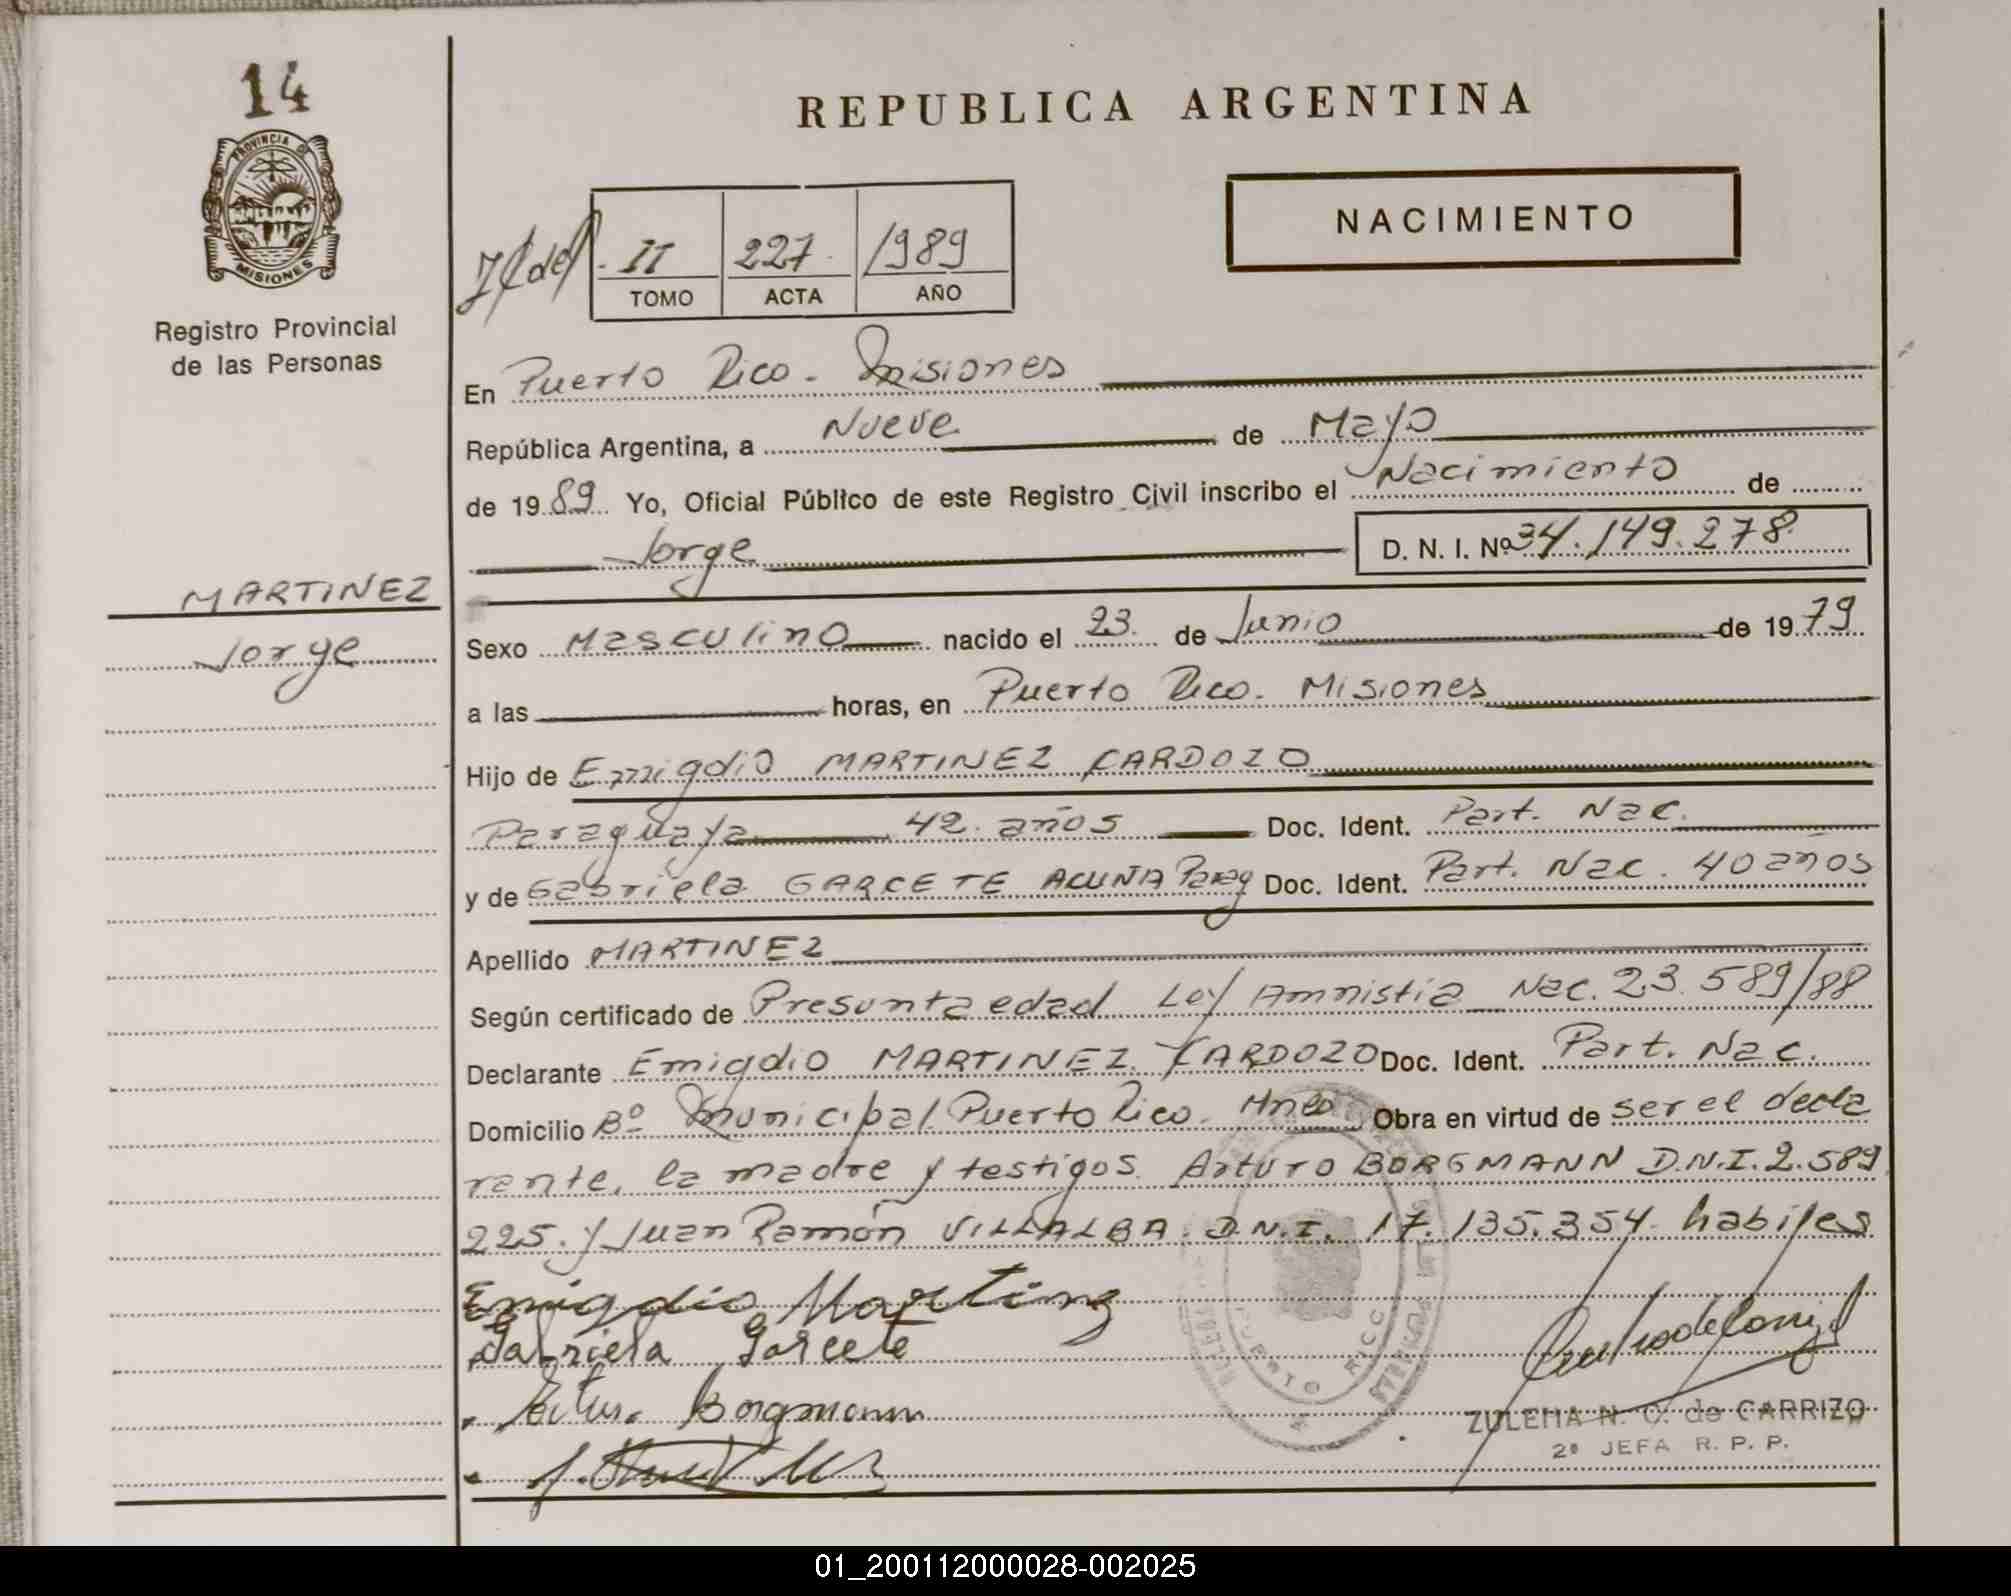 14
REPUBLICA ARGENTINA
PROVINCIA DE
MISIONES
Registro Provincial
de las Personas
II 227 1989
TOMO ACTA AÑO
NACIMIENTO
En Puerto Rico. Misiones
República Argentina, a Nueve de Mayo
de 1989 Yo, Oficial Público de este Registro Civil inscribo el Nacimiento de
Jorge D. N. I. Nº 34.149.278
MARTINEZ
Jorge
Sexo Masculino nacido el 23 de Junio de 1979
a las horas, en Puerto Rico. Misiones
Hijo de Emigdio MARTINEZ CARDOZO
Paraguaya 42 años Doc. Ident. Part. Nac.
y de Gabriela GARCETE ACUÑA Parag Doc. Ident. Part. Nac. 40 años
Apellido MARTINEZ
Según certificado de Presunta edad Ley Amnistia Nac. 23.589/88
Declarante Emigdio MARTINEZ CARDOZO Doc. Ident. Part. Nac.
Domicilio Bº Municipal Puerto Rico. Mnes Obra en virtud de ser el decla
rante, la madre y testigos Arturo BORGMANN D.N.I. 2.589
225. y Juan Ramón VILLALBA. D.N.I. 17.135.354. habiles
Emigdio Martinez
Gabriela Garcete
Borgmann
PUERTO RICO
ZULEMA N. C. de CARRIZO
2º JEFA R. P. P.
01_200112000028-002025